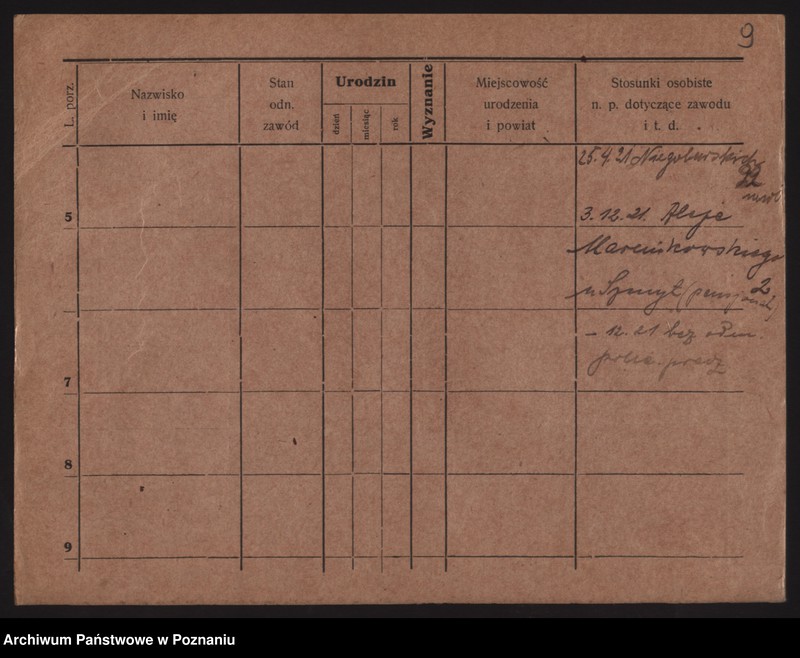 9
L. porz.
Nazwisko
i imię
Stan
odn.
zawód
Urodzin
dzień
miesiąc
rok
Wyznanie
Miejscowość
urodzenia
i powiat
Stosunki osobiste
n. p. dotyczące zawodu
i t. d.
25.4.21
22
5
3.12.21. Aleje
Marcinkowskiego
u Szmyt (pensjonat) 2
- 12.21 bez
7
8
9
Archiwum Państwowe w Poznaniu